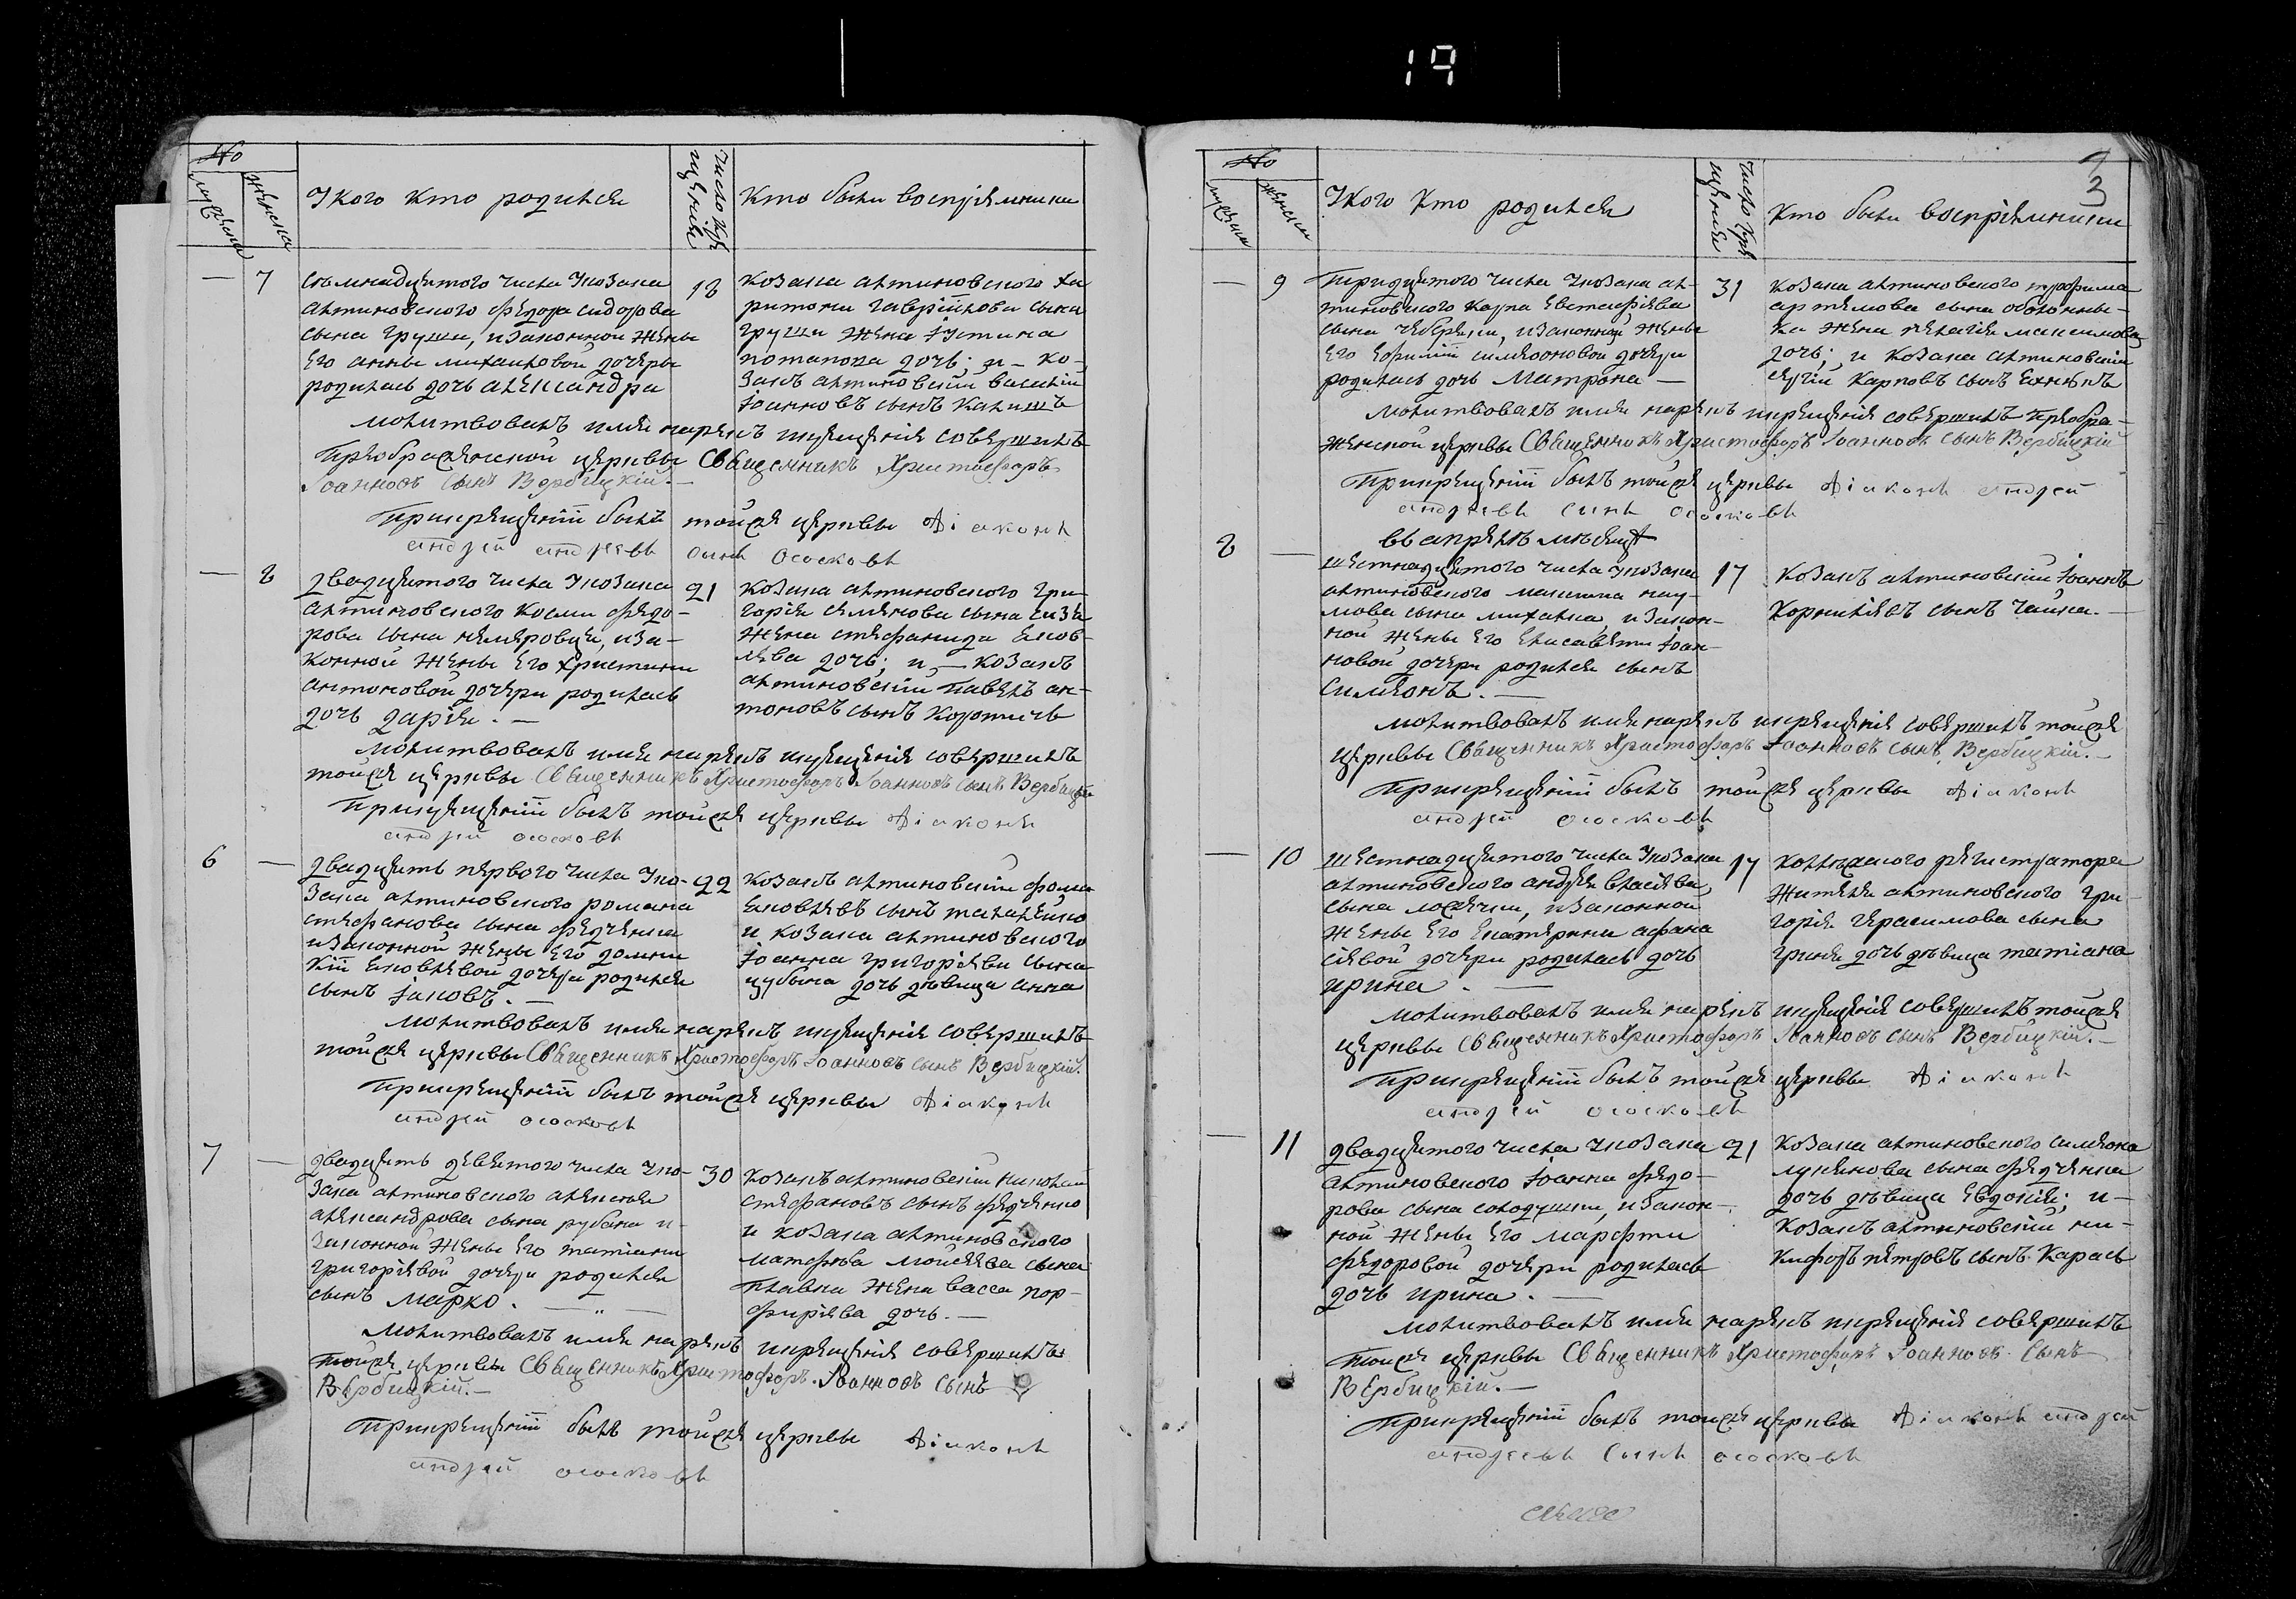 19
№
мужеска
женска
У кого кто родился
число крещения
Кто были воспріемники
— 7
семнадцятого числа У козака
алтиновского Федора сидорова
сына груши, и законной жены
его анны михаиловой дочеры
родилась дочь александра
18
козака алтиновского ха
ритона гавріилова сына
груши жена Іустина
потапова дочь; и – ко-
закъ алтиновскій василій
Іоанновъ сынъ калишъ
молитвовалъ имя нарекъ икрещенія совершилъ
Преображенской церквы Священникъ Христофоръ
Іоанновъ сынъ Вербицкій.—
Прикрещеніи былъ тойже церквы діаконъ
андрей андреевъ сынъ ососковъ
— 8
двадцятого числа У козака
алтиновского космы федо-
рова сына немеровця, иза-
конной жены его христины
антоновой дочери родилась
дочь дарія. —
21
козака алтиновского гри-
горія семенова сына сиза
жена стефанида іаков-
лева дочь; и, — козакъ
алтиновскій павелъ ан-
тоновъ сынъ коротичь
молитвовалъ имя нарекъ икрещенія совершилъ
тойже церквы Священникъ Христофоръ Іоанновъ Сынъ Вербицкій
Прикрещеніи былъ тойже церквы діаконъ
андрей ососковъ
6 —
двадцять первого числа У ко-
зака алтиновского романа
стефанова сына федченка
изаконной жены его домни
кіи іаковлевой дочери родился
сынъ Іаковъ. —
22
козакъ алтиновскій фома
іаковлевъ сынъ
и козака алтиновского
Іоанна григоріева сына
цубына дочь девица анна
молитвовалъ имя нарекъ икрещенія совершилъ
тойже церквы Священникъ Христофоръ Іоанновъ сынъ Вербицкій.
Прикрещеніи былъ тойже церквы діаконъ
андрей ососковъ
7 —
двадцять девятого числа У ко-
зака алтиновского алексея
александрова сына рубана и-
законной жены его татіаны
григоріевой дочери родился
сынъ марко. —
30
козакъ алтиновскій николай
стефановъ сынъ федченко
и козака алтиновского
матфева мойсеева сына
плавки жена васса пор-
фиріева дочь. —
молитвовалъ имя нарекъ икрещенія совершилъ
тойже церквы Священникъ Христофоръ Іоанновъ Сынъ
Вербицкій.—
Прикрещеніи былъ тойже церквы діаконъ
андрей ососковъ
3
№
мужеска
женска
У кого кто родился
число крещения
Кто были воспріемники
— 9
Тридцятого числа У козака ал-
тиновского карпа евстафіева
сына чебрели, изаконной жены
его евфиміи симеоновой дочери
родилась дочь матрона —
31
козака алтиновского трофима
артемова сына оболонны-
ка жена пелагія максимова
дочь; и козака алтиновскій
сергій карповъ сынъ
молитвовалъ имя нарекъ икрещенія совершилъ Преобра-
женской церквы Священникъ Христофоръ Іоанновъ сынъ Вербицкій
Прикрещеніи былъ тойже церквы діаконъ андрей
андреевъ сынъ ососковъ
въ апреле месяце
8 —
шестнадцятого числа У козака
алтиновского максима нау-
мова сына михалка, изакон-
ной жены его елисавети Іоан-
новой дочери родился сынъ
симеонъ. —
17
козакъ алтиновскій Іоаннъ
корниліевъ сынъ чайка. —
молитвовалъ имя нарекъ икрещенія совершилъ тойже
церквы Священникъ Христофоръ Іоанновъ сынъ Вербицкій.—
Прикрещеніи былъ тойже церквы діаконъ
андрей ососковъ
— 10
шестнадцятого числа У козака
алтиновского андрея власіева
сына изаконной
жены его екатерины афана
сіевой дочери родилась дочь
ирина. —
17
коллежского регистратора
жителя алтиновского гри-
горія герасимова сына
гриня дочь девица татіана
молитвовалъ имя нарекъ икрещенія совершилъ тойже
церквы Священникъ Христофоръ Іоанновъ сынъ Вербицкій.—
Прикрещеніи былъ тойже церквы діаконъ
андрей ососковъ
— 11
двадцятого числа У козака
алтиновского Іоанна федо-
рова сына солодушки, изакон-
ной жены его марфти
федоровой дочери родилась
дочь ирина. —
21
козака алтиновского симеона
лукянова сына федченка
дочь девица евдокія; и-
козакъ алтиновскій ни-
кифоръ петровъ сынъ карась
молитвовалъ имя нарекъ икрещенія совершилъ
тойже церквы Священникъ Христофоръ Іоанновъ Сынъ
Вербицкій.—
Прикрещеніи былъ тойже церквы діаконъ андрей
андреевъ сынъ ососковъ